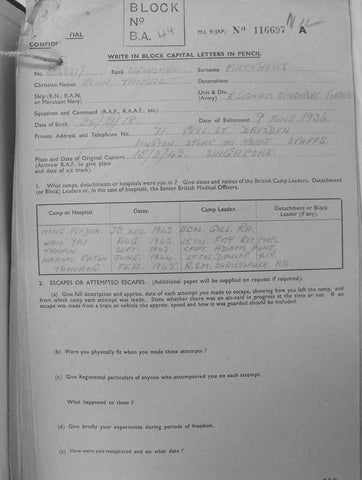 BLOCK
Nº
B.A. 49
CONFIDENTIAL
M.I. 9/JAP/ Nº 116697 A
WRITE IN BLOCK CAPITAL LETTERS IN PENCIL
No. Rank SIGNALMAN Surname MATTHEWS
Christian Names JOHN THOMAS Decorations
Ship (R.N., R.A.N. or Merchant Navy) Unit & Div. (Army) R. SIGNALS. SINGAPORE
Squadron and Command (R.A.F., R.A.A.F., etc.)
Date of Birth 26/2/18. Date of Enlistment 9 JUNE 1936.
Private Address and Telephone No. 71 PEEL ST. DRESDEN
STOKE ON TRENT STAFFS.
Place and Date of Original Capture 15/2/42. SINGAPORE.
(Aircrew R.A.F. to give place and date of a/c crash).
1. What camps, detachments or hospitals were you in ? Give dates and names of the British Camp Leaders, Detachment (or Block) Leaders or, in the case of Hospitals, the Senior British Medical Officers.
Camp or Hospital. Dates. Camp Leader. Detachment or Block Leader (if any).
DEC. 1942 LT COL GILL. R.A.
AUG 1943 LT. COL
SEPT 1943. CAPT. ADAMS,
JUNE. 1944. LT. COL DUNLOP
FEB. 1945 R.S.M. CHRISTOPHER R.A.
2. ESCAPES OR ATTEMPTED ESCAPES. (Additional paper will be supplied on request if required).
(a) Give full description and approx. date of each attempt you made to escape, showing how you left the camp, and from which camp each attempt was made. State whether there was an air-raid in progress at the time or not. If an escape was made from a train or vehicle the approx. speed and how it was guarded should be included.
(b) Were you physically fit when you made these attempts ?
(c) Give Regimental particulars of anyone who accompanied you on each attempt.
What happened to them ?
(d) Give briefly your experiences during periods of freedom.
(e) How were you recaptured and on what date ?